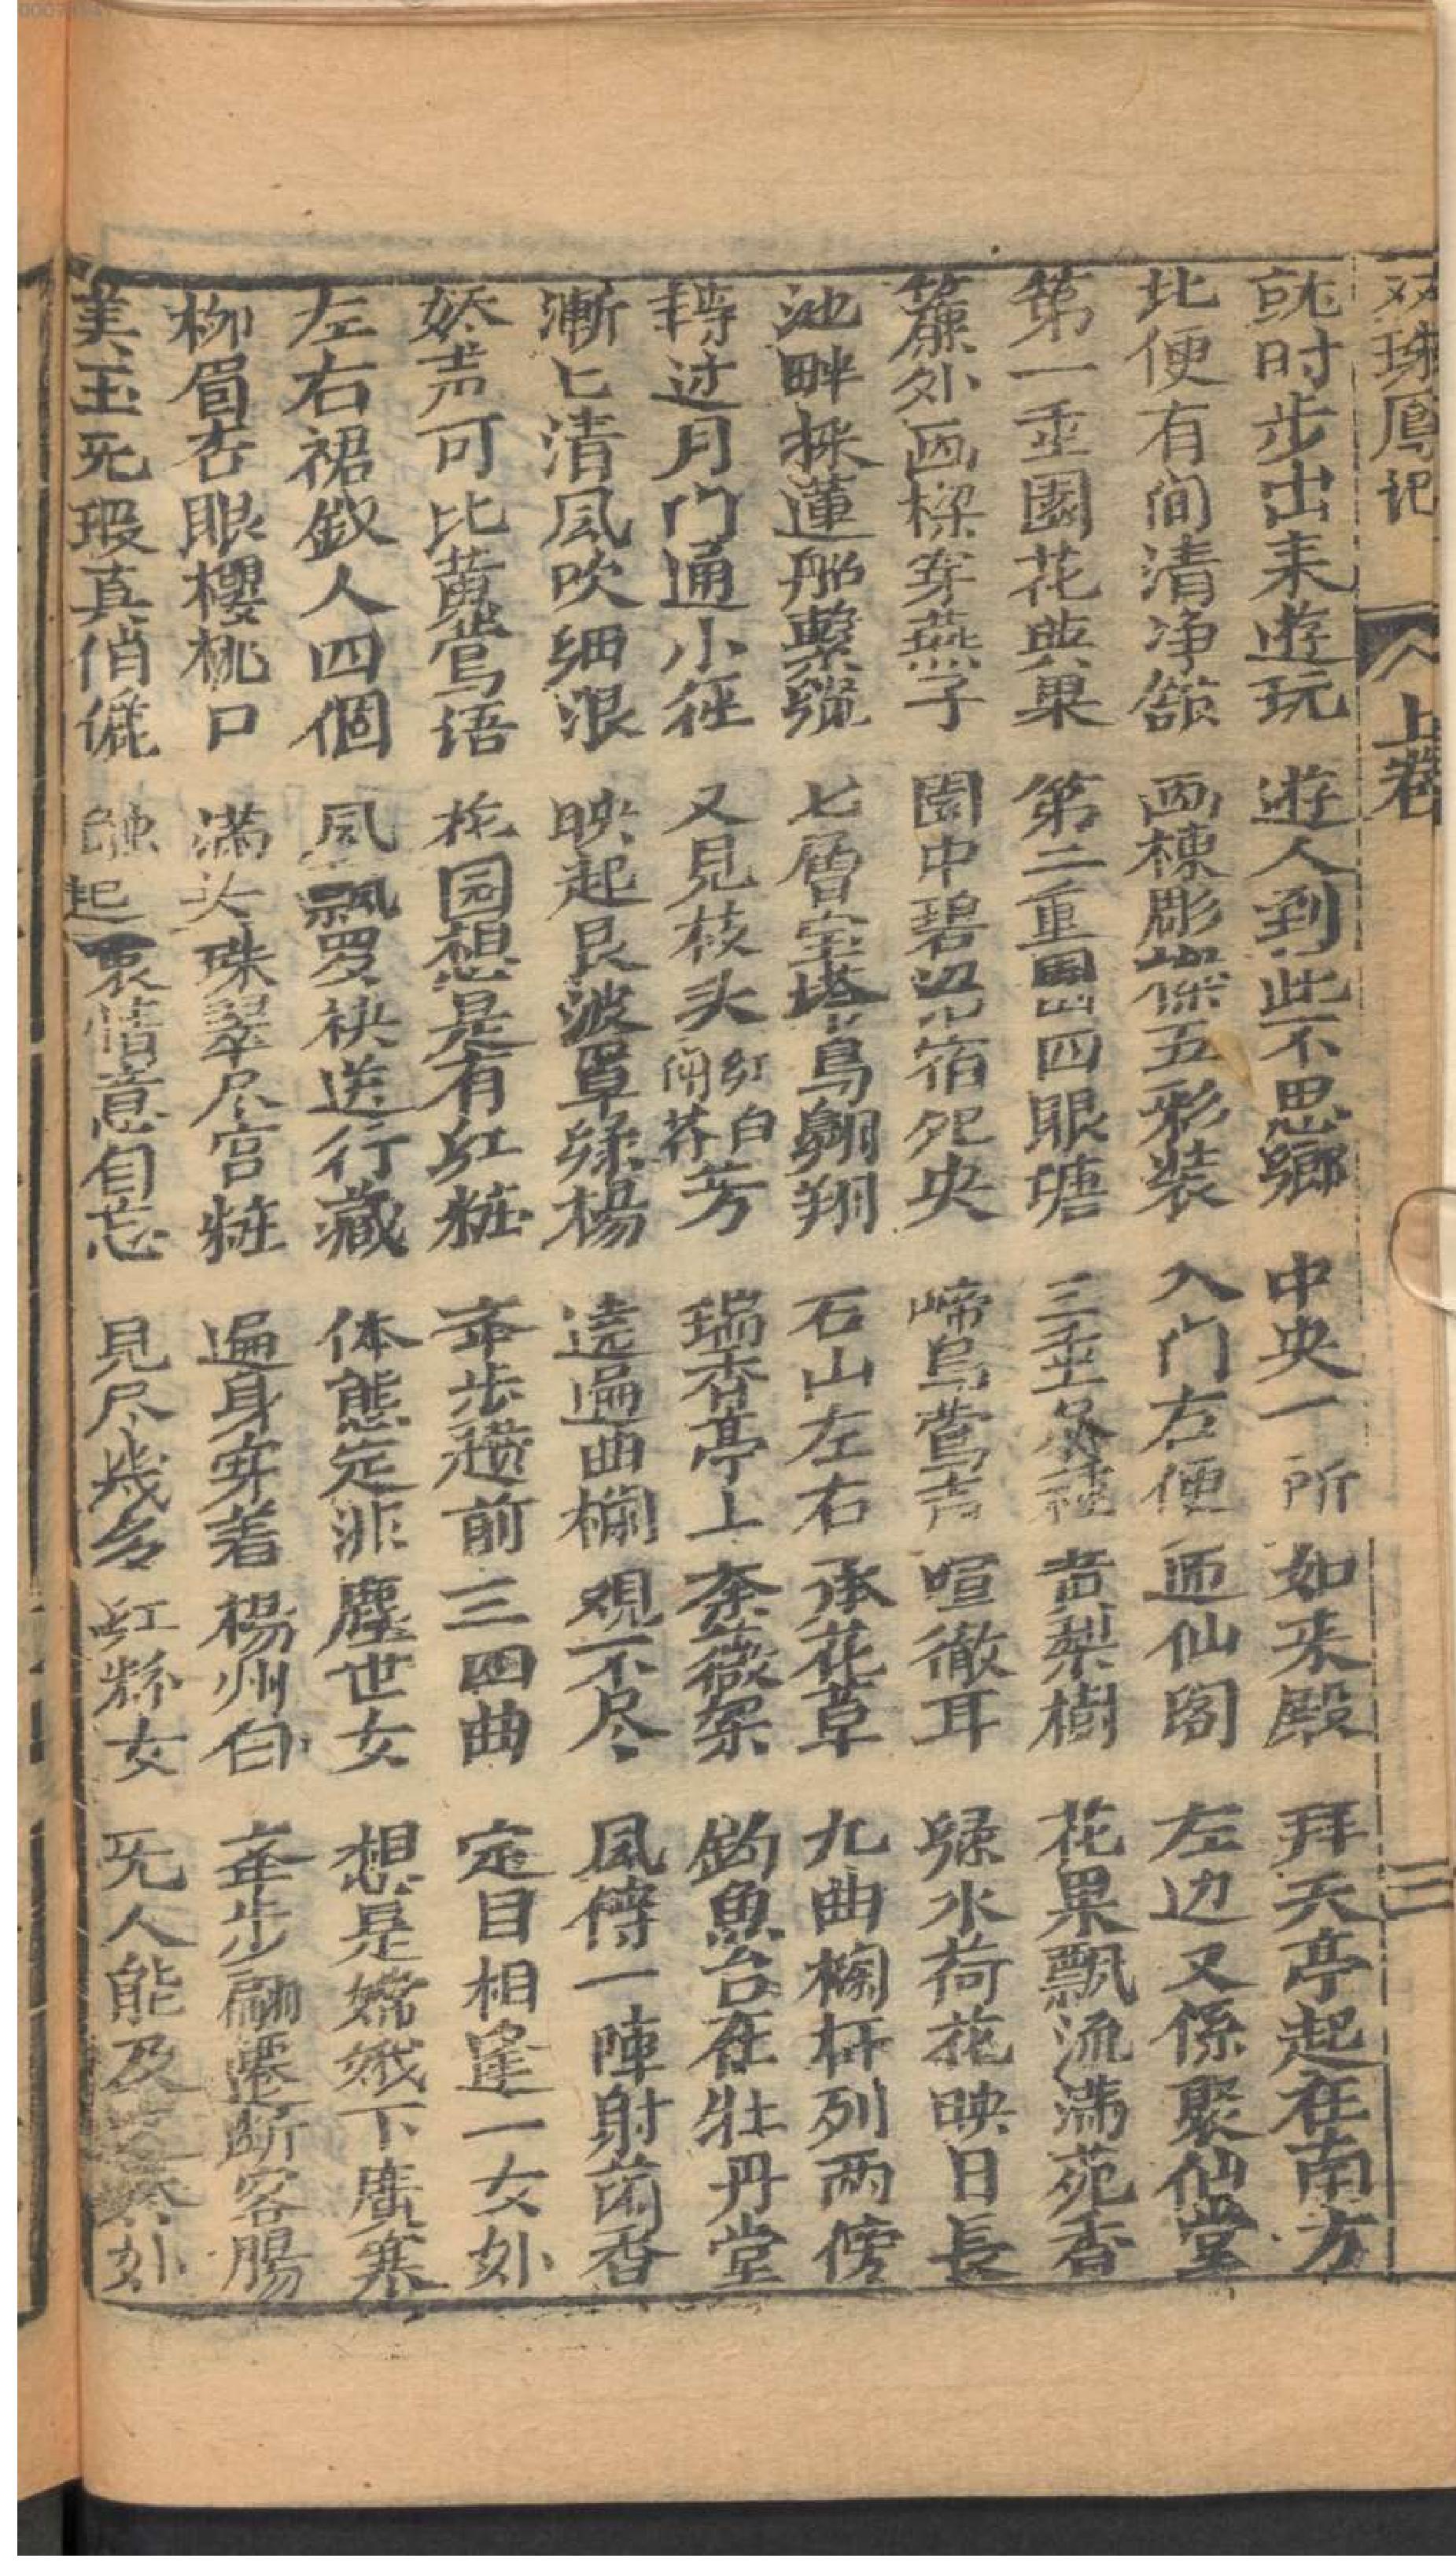 双珠鳳记 上卷 三
就时步出来遊玩 遊人到此不思鄉 中央一所如来殿 拜天亭起在南方
北便有间清净舘 画棟彫樑五彩装 入门右便迊仙阁 左边又係聚仙堂
第一重園花與果 第二重園四眼塘 三重 黄梨樹 花果飘流满苑香
簾外画樑穿燕子 園中碧沼宿鸳央 啼鳥鶯声喧徹耳 綠水荷花映日長
池畔採蓮船繫纜 七層宝塔鳥翱翔 石山左右承花草 九曲欄杆列两傍
轉过月门通小徑 又見枝头红白间芥芳 瑞香亭上荼薇架 釣魚台在牡丹堂
漸匕清风吹细浪 映起艮波罩綠楊 遶遍曲欄观不尽 风传一陣射蘭香
娇声可比黄鶯语 花园想是有红粧 夆步趱前三四曲 定目相逢一女外
左右裙釵人四個 风飘罗袂送行藏 体態定非塵世女 想是嫦娥下廣寒
柳眉杏眼櫻桃口 满头珠翠尽宫粧 遍身穿着楊州白 夆步翩遷断客腸
美玉无瑕真俏儷 触起衷情意自忘 見尽幾多红粉女 无人能及 外